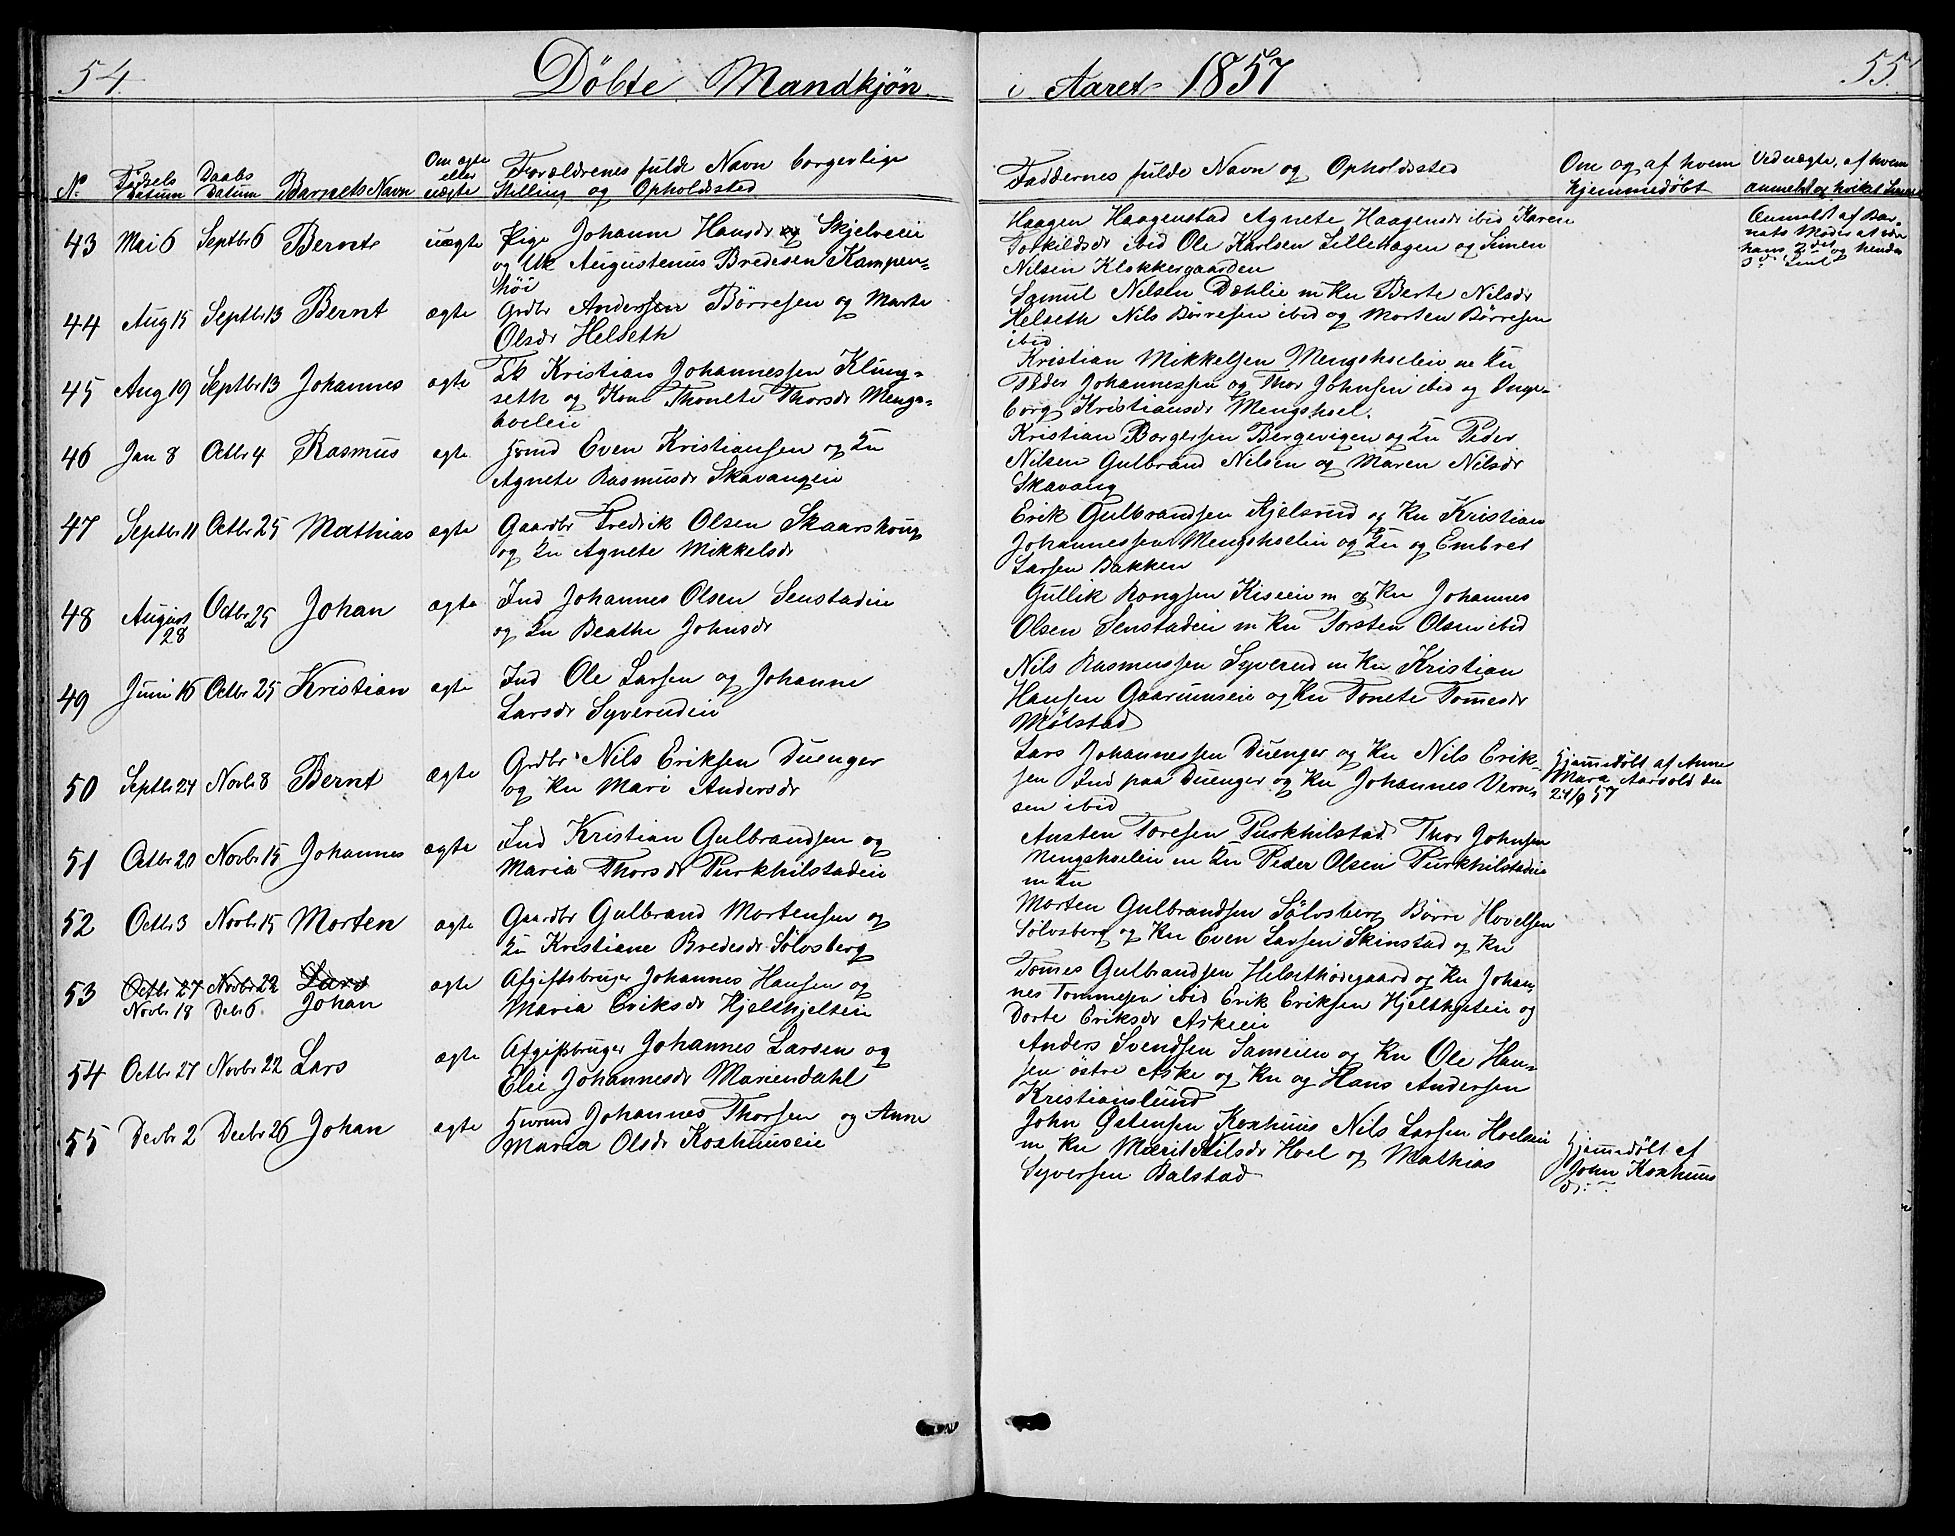 54.
Döbte Mandkjøn
i Aaret 1857
55.
No
Födsels Datum
Daabs Datum
Barnets Navn
Om ægte eller uægte
Forældrenes fulde Navn borgerlige
Stilling og Opholdssted
Faddernes fulde Navn og Opholdssted
Om og af hvem
hjemmedöbt
Ved uægte, af hvem
anmeldt og hvilket
43 Mai 6 Septbr 6 Bernt uægte Pige Johanne Hansdr Skjelveie
og Uk Augustenus Bredesen Kampen-
höi
Haagen Haagenstad Agnete Haagensdr ibid Karen
Torkildsdr ibid Ole Karlsen Lillehagen og Simen
Nilsen Klokkergaarden
Anmeldt af Bar-
nets Moder at være
hans 2det og hendes
44 Aug 15 Septbr 13 Bernt ægte Grdbr Anderssen Börresen og Marte
Olsdr Helseth
Samul Nilsen Dæhlie m Ku Berte Nilsdr
Helseth Nils Börresen ibid og Morten Börresen
ibid
45 Aug 19 Septbr 13 Johannes ægte Kristian Johannessen Kling-
seth og Kone Thonete Thorsdr Mengs-
hoeleie
Kristian Mikkelsen Mengshoeleie m Ku
Peder Johannessen og Thor Johnsen ibid og Inge-
borg Kristiansdr Mengshoel.
46 Jan 8 Octbr 4 Rasmus ægte Even Kristiansen og Ku
Agnete Rasmusdr Skavangeie
Kristian Borgersen Bergevigen og Ku Peder
Nilsen Gulbrand Nilsen og Maren Nilsdr
Skavang
47 Septbr 11 Octbr 25 Mathias ægte Gaardbr Fredrik Olsen Skaarshoug
og Ku Agnete Mikkelsdr
Erik Gulbrandsen Kjelsrud og Ku Kristian
Johannessen Mengshoeleie og Ku og Embret
Larsen Bakken
48 August 28 Octbr 25 Johan ægte Ind Johannes Olsen Senstadeie
og Ku Beathe Johnsdr
Gullik Rongsen Kiseeie m Ku Johannes
Olsen Senstadeie m Ku Torsten Olsen ibid
49 Juni 16 Octbr 25 Kristian ægte Ind Ole Larsen og Johanne
Larsdr Syverudeie
Nils Rasmussen Syverud m Ku Kristian
Hansen Gaarumseie og Ku Tonete Tomesdr
Mölstad
50 Septbr 24 Novbr 8 Bernt ægte Grdbr Nils Eriksen Duenger
og Ku Mari Andersdr
Lars Johannessen Duenger og Ku Nils Erik-
sen Ind paa Duenger og Ku Johannes Vern-
sen ibid
Hjemedöbt af Anne
Mara Aarsold den
24/9 57
51 Octbr 20 Novbr 15 Johannes ægte Ind Kristian Gulbrandsen og
Maria Thorsdr Purkhilstadeie
Austen Toresen Purkhilstad Thor Johnsen
Mengshoeleie m Ku Peder Olsen Purkhilstadeie
m Ku
52 Octbr 3 Novbr 15 Morten ægte Gaardbr Gulbrand Mortensen og
Ku Kristiane Bredesdr Sölvsberg
Morten Gulbrandsen Sölvsberg Börre Hovelsen
Sölvsberg og Ku Even Larsen Skinstad og Ku
53 Octbr 27 Novbr 22 Lars
Novbr 18 Debr 6. Johan
ægte Afgiftsbruger Johannes Hansen og
Maria Eriksdr Hjelthjelteie
Tomes Gulbrandsen Helsethödegaard og Ku Johan-
nes Tommesen ibid Erik Eriksen Hjelthjelteie og
Dorte Eriksdr Askeeie
54 Octbr 27 Novbr 22 Lars ægte Afgiftsbruger Johannes Larsen og
Elie Johannesdr Mariendahl
Anders Svendsen Sameien og Ku Ole Han-
sen östre Aske og Ku og Hans Andersen
Kristianslund
55 Decbr 2 Decbr 26 Johan ægte Johannes Thorsen og Anne
Maria Olsdr Koxhuuseie
John Östensen Koxhuus Nils Larsen Hoelseie
m Ku Marit Nilsdr Hoel og Mathias
Syversen Balstad
Hjemedöbt af
John Koxhuus